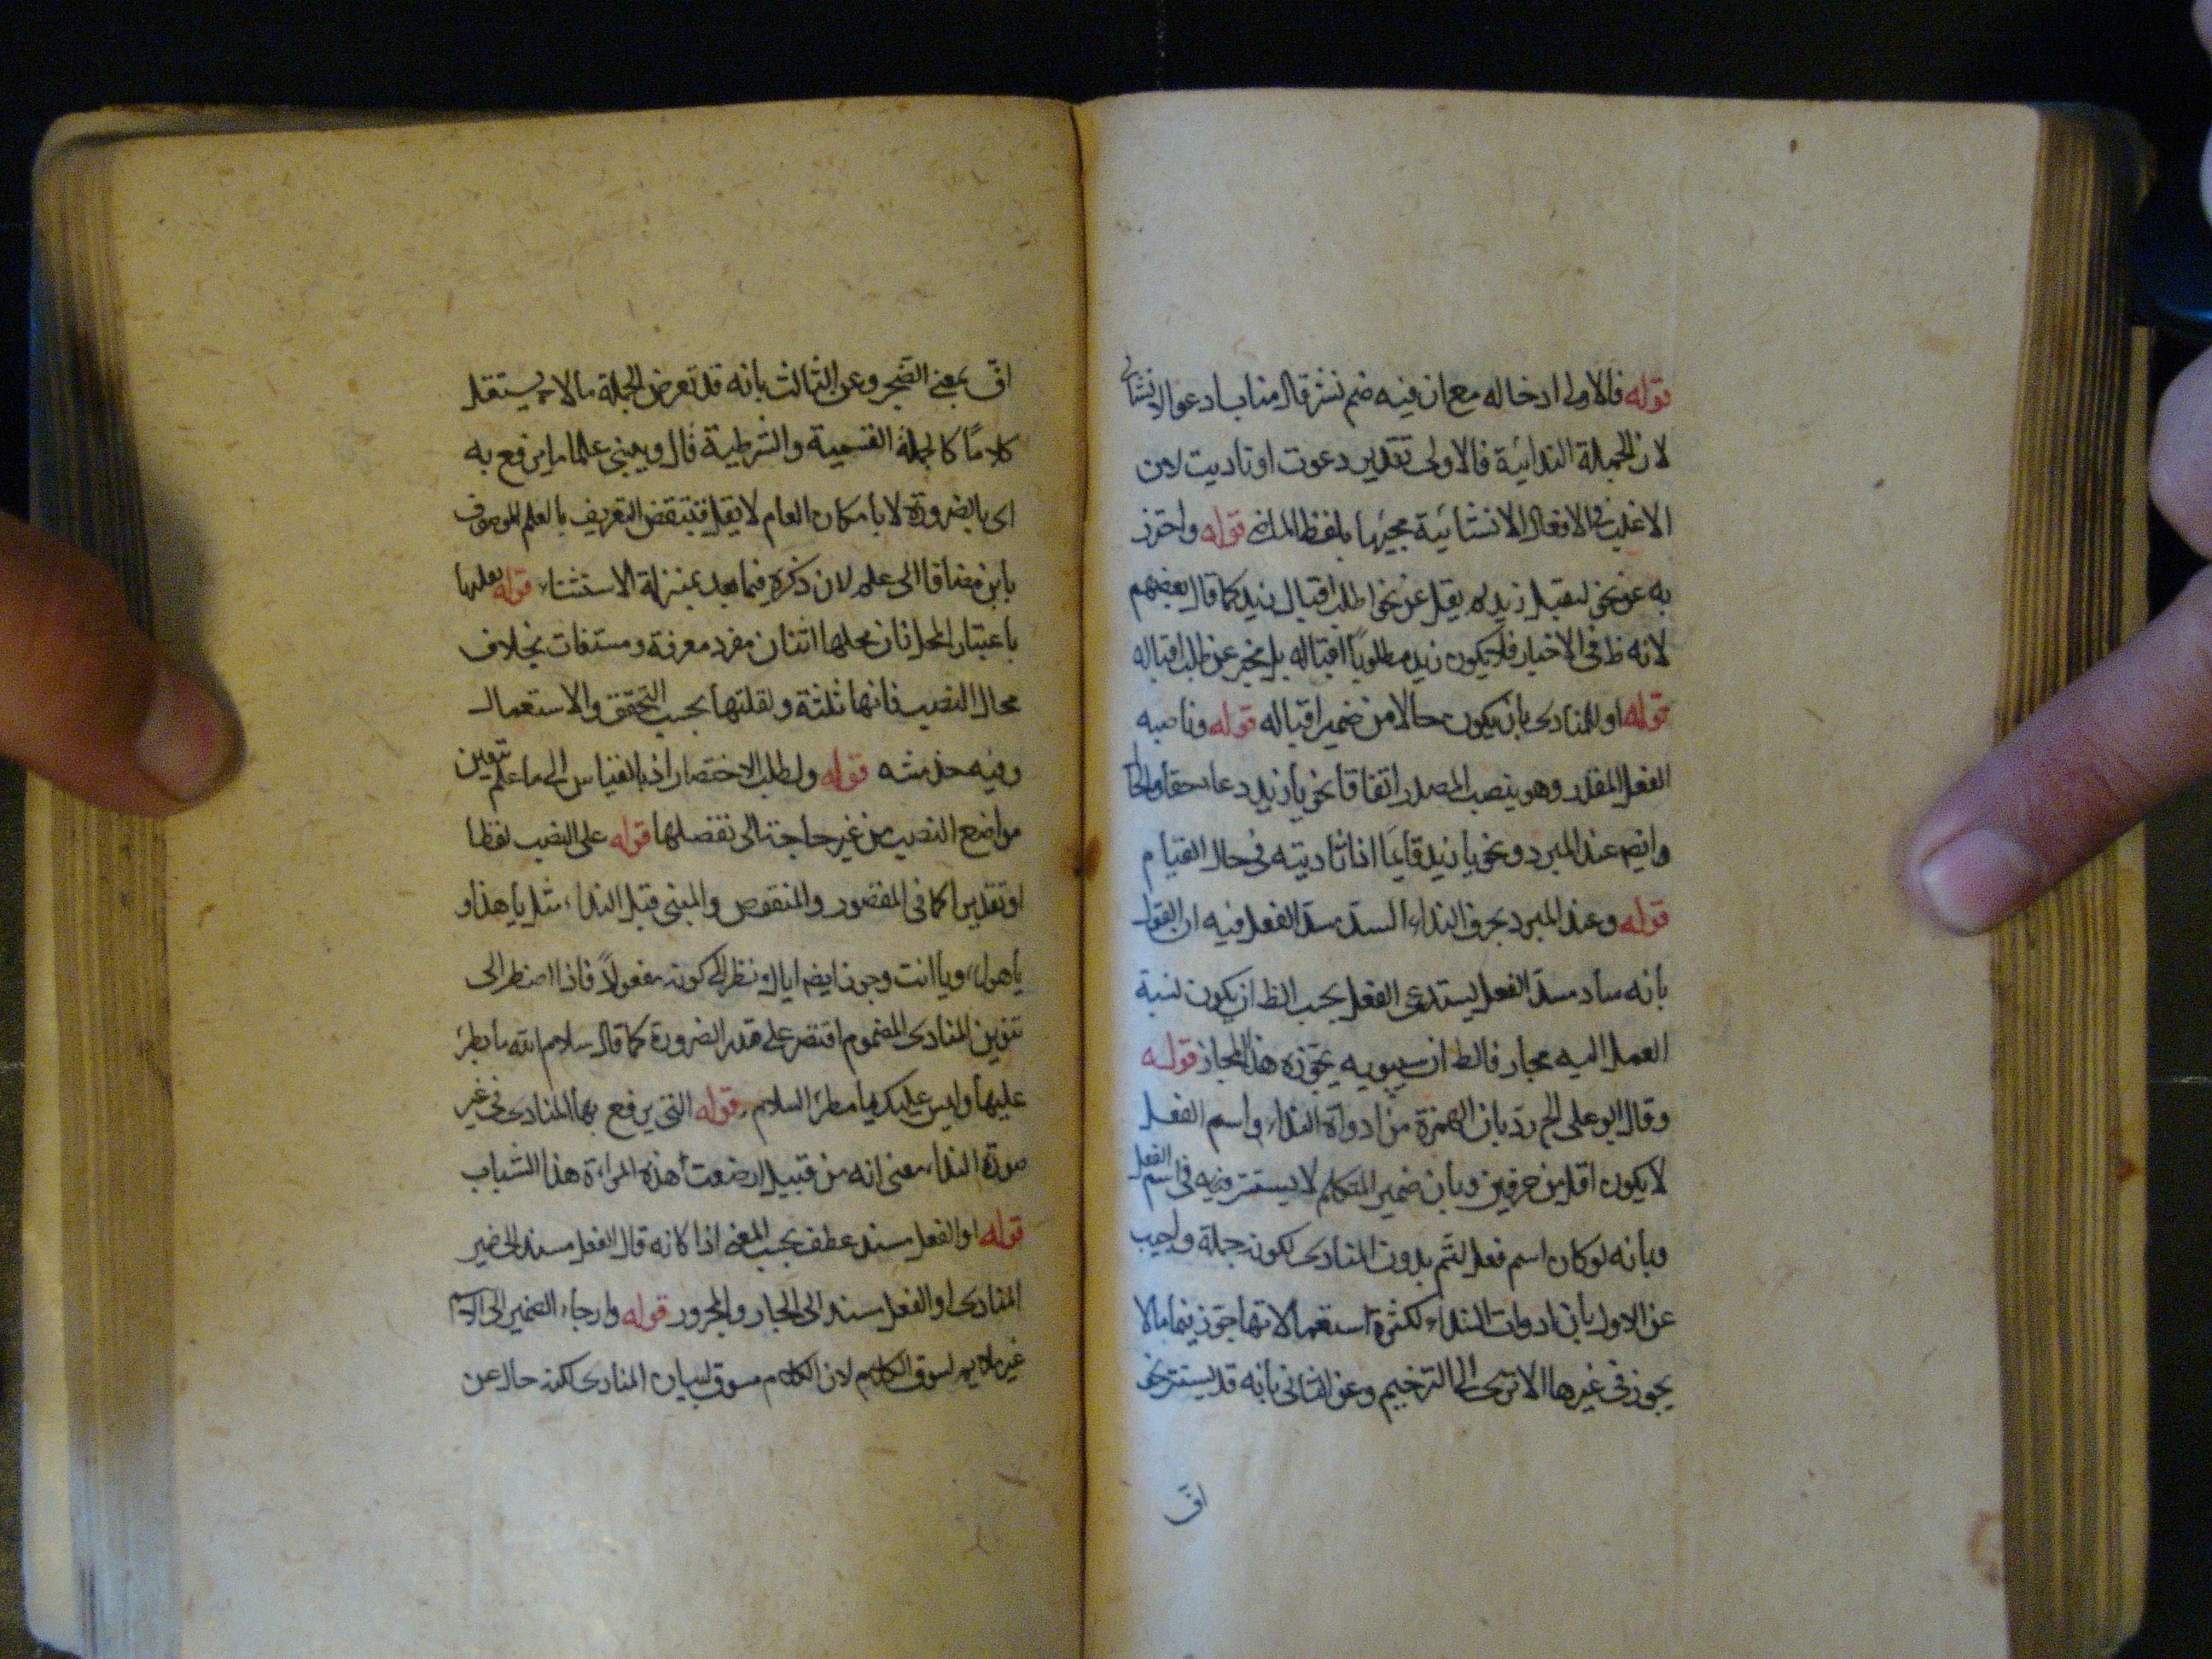 قوله فالاولى ادخاله مع ان فيه ضم نشر قال مناب ادعو الانشائى
لان الجملة الندائية فالاولى تقدير دعوت او ناديت لان
الاغلب فى الافعال الانشائية مجيئها بلفظ الماضى قوله واحترز
به عن نحو ليقبل زيد لم يقل عن نحو اطلب اقبال زيد كما قال بعضهم
لانه ظ فى الاخبار فلا يكون زيد مطلوبا اقباله بل مخبر عن طلب اقباله
قوله او للمنادى بان يكون حالا من ضمير اقباله قوله وناصبه
الفعل المقدر وهو ينصب المصدر اتفاقا نحو يا زيد دعاء حقا والحال
وايضم عند المبرد ونحو يا زيد قائما اذا ناديته فى حال القيام
قوله وعند المبرد بحرف النداء لسده مسد الفعل فيه ان القول
بانه ساد مسد الفعل يستدعى الفعل بحسب الظ ان يكون نسبة
العمل اليه مجاز فالظ ان سيبويه يجوزه هذا المجاز قوله
وقال ابو على الخ رد بان الهمزة من ادواة النداء واسم الفعل
لا يكون اقل من حرفين وبان ضمير المتكلم لا يستتر فيه فى اسم الفعل
وبانه لو كان اسم فعل لتم بدون المنادى لكونه جملة واجيب
عن الاول بان ادوات النداء لكثرة استعمالاتها جوز فيها ما لا
يجوز فى غيرها الا ترى الى الترخيم وعن الثانى بانه قد يستتر نحو
اف
اف بمعنى اتضجر وعن الثالث بانه قد تعرض الجملة ما لا يستقل
كلاما كالجملة القسمية والشرطية قال ويبنى على ما يرفع به
اى بالضرورة لا بامكان العام لا يقل فينتقض التعريف بالعلم الموصوف
بابن مضافا الى علم لان ذكره فيما بعد بمنزلة الاستثناء قوله لقلتها
باعتبار المحل فان محلها اثنان مفرد معرفة ومستغاث بخلاف
محال النصب فانها ثلثة ولقلتها بحسب التحقق والاستعمال
وفيه خدشه قوله ولطلب الاختصار اذ بالقياس الى ما علم تعين
مواضع النصب من غير حاجة الى تفصيلها قوله على النصب لفظا
او تقديرا كما فى المقصور والمنقوص والمبنى قبل النداء مثل يا هذا و
يا هولاء ويا انت وجوز ايضم اياك ونظر الى كونه مفعولا فاذا اضطر الى
تنوين المنادى المضموم اقتصر على قدر الضرورة كما قال سلام الله يا مطر
عليها وليس عليك يا مطر السلام قوله التى يرفع بها المنادى فى غير
صورة النداء معنى انه من قبيل ارضعت هذه المراة هذا الشباب
قوله او الفعل مسند عطف بحسب المعنى اذا كانه قال الفعل مسند الى ضمير
المنادى او الفعل مسند الى الجار والمجرور قوله وارجاع الضمير الى الاسم
غير ملايم لسوق الكلام لان الكلام مسوق لبيان المنادى لكنه حال عن